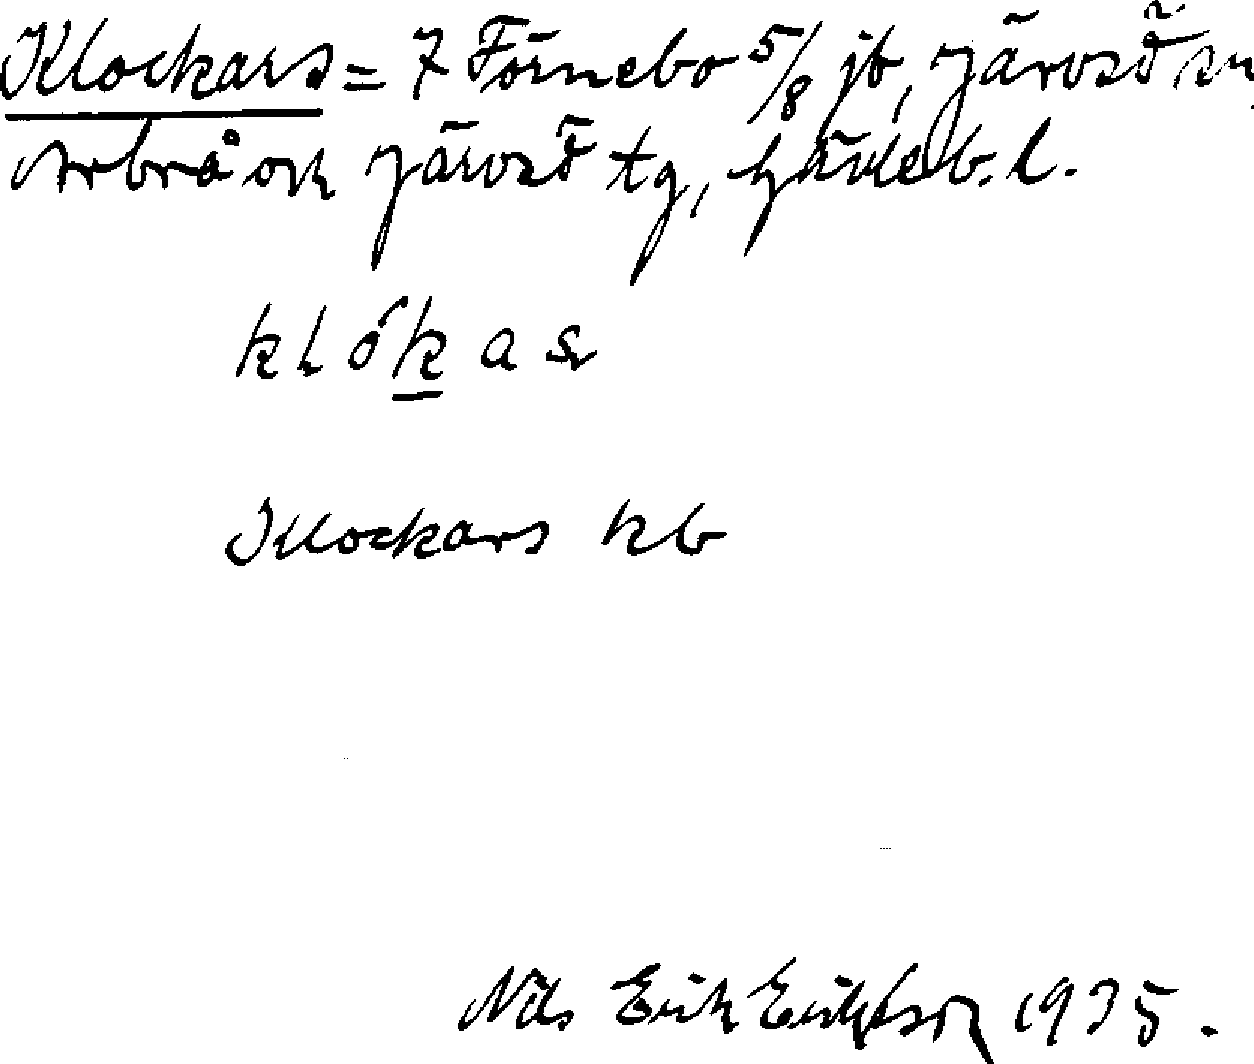 Klockars = 7 Förnebo 5/8 jb, Järvsö sn
Arbrå och Järvsö tg, Gävleb. l.
klókas
Klockars kb
Nils Erik Eriksson 1935.